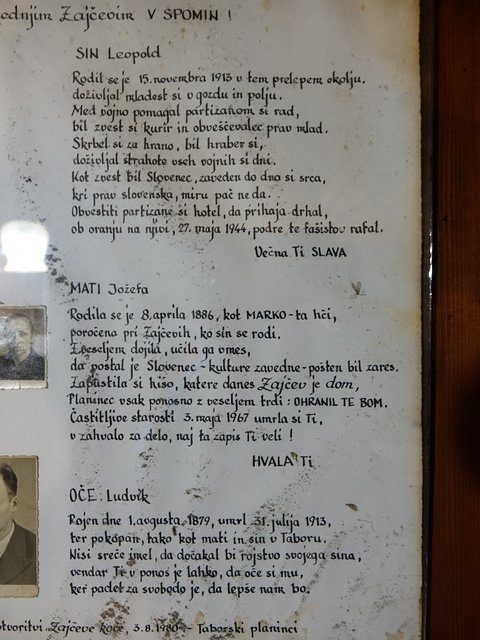 ednjim Zajčevim V SPOMIN !
SIN Leopold
Rodil se je 15. novembra 1913 v tem prelepem okolju,
doživljal mladost si v gozdu in polju.
Med vojno pomagal partizanom si rad,
bil zvest si kurir in obveščevalec prav mlad.
Skrbel si za hrano, bil hraber si,
doživljal strahote vseh vojnih si dni.
Kot zvest bil Slovenec, zaveden do dna si srca,
kri prav slovenska, miru pač ne da.
Obvestiti partizane si hotel, da prihaja drhal,
ob oranju na njivi, 27. maja 1944, podre te fašistov rafal.
Večna Ti SLAVA
MATI Jožefa
Rodila se je 8. aprila 1886, kot MARKO-ta hči,
poročena pri Zajčevih, ko sin se rodi.
Z veseljem dojila, učila ga vmes,
da postal je Slovenec - kulture zavedne-pošten bil zares.
Zapustila si hišo, katere danes Zajčev je dom,
Planinec vsak ponosno z veseljem trdi: OHRANIL TE BOM.
Častitljive starosti 3. maja 1967 umrla si Ti,
v zahvalo za delo, naj ta zapis Ti veli !
HVALA Ti
OČE Ludvik
Rojen dne 1. avgusta 1879, umrl 31. julija 1913,
ter pokopan, tako kot mati in sin v Taboru.
Nisi sreče imel, da dočakal bi rojstvo svojega sina,
vendar Ti v ponos je lahko, da oče si mu,
ker padel za svobodo je, da lepše nam bo.
otvoritvi Zajčeve koče, 3.8.1980 - Taborski planinci